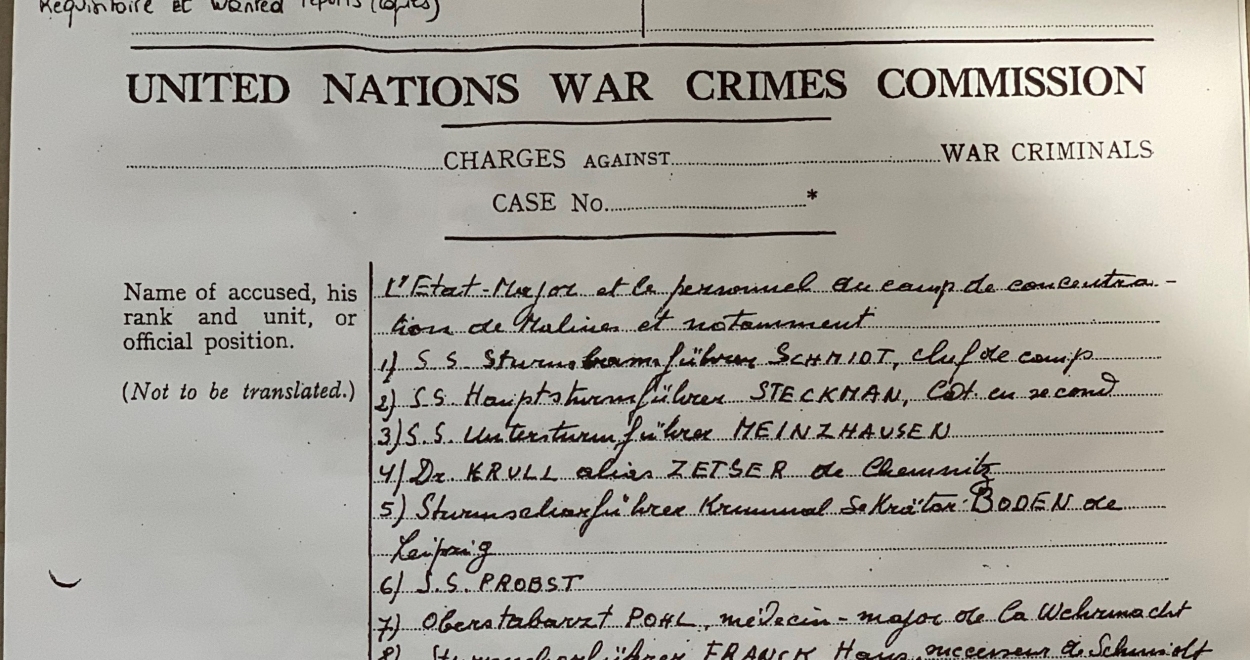 Requisitoire et Wanted reports (copies)
UNITED NATIONS WAR CRIMES COMMISSION
CHARGES AGAINST WAR CRIMINALS
CASE No. *
Name of accused, his
rank and unit, or
official position.
(Not to be translated.)
L'Etat-Major et le personnel du camp de concentra-
tion de Malines et notamment
1) S.S. SCHMIDT, chef de camp
2) S.S. Hauptsturmführer STECKMAN, Cdt. en second
3) S.S. Untersturmführer MEINZHAUSEN
4) Dr. KRULL alias ZETSER de Chemnitz
5) Sturmscharführer Kriminal Sekretär BODEN de
Leipzig
6) S.S. PROBST
7) Oberstabarzt POHL, médecin-major de la Wehrmacht
8) FRANCK Hans, successeur de Schmidt